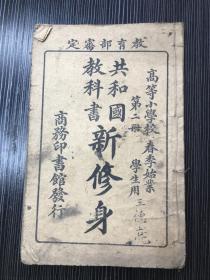 教育部審定
高等小學校春季始業
第二冊 學生用
共和國
教科書
新修身
商務印書館發行